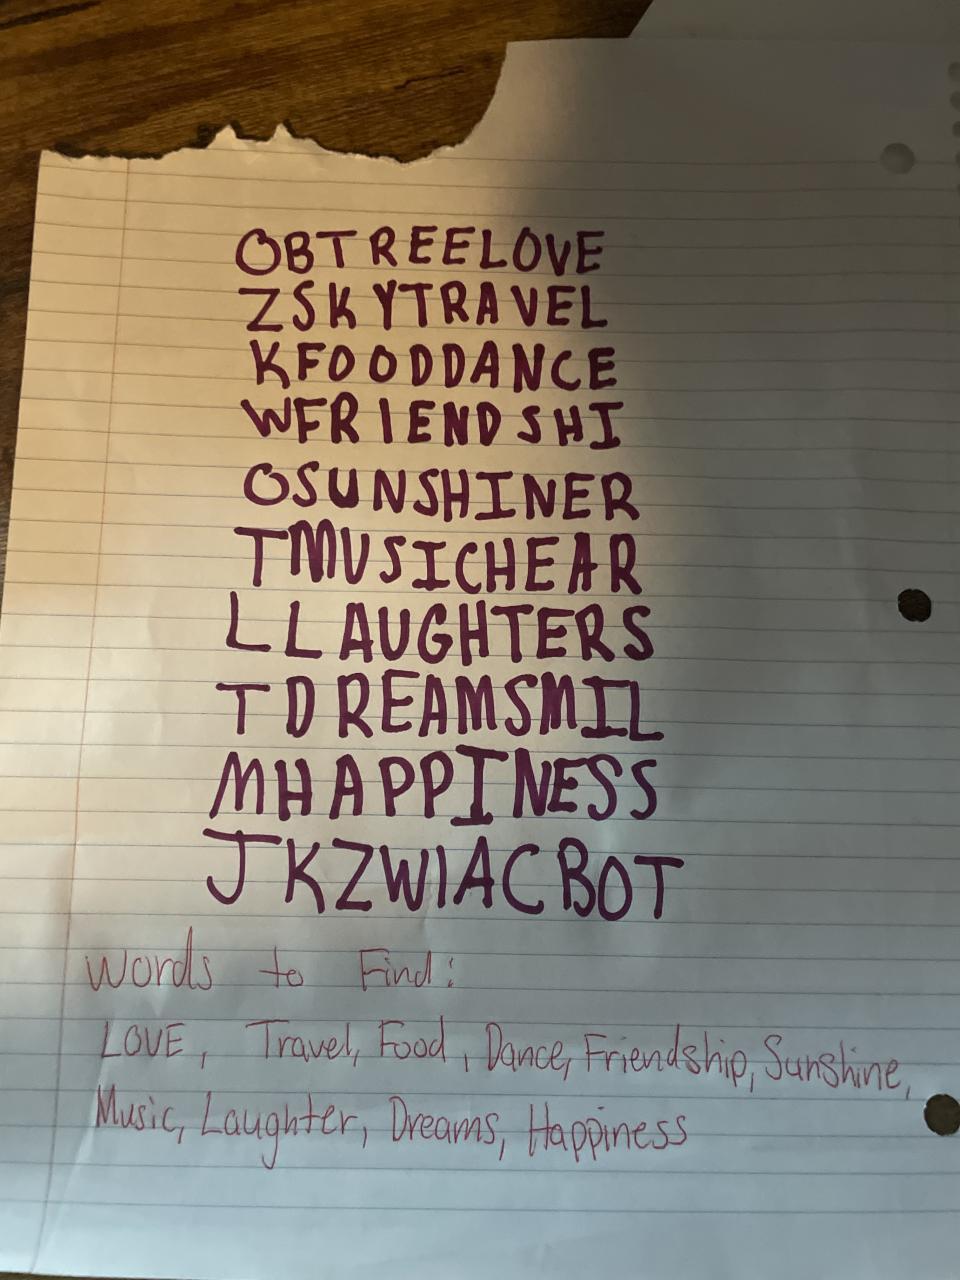 OBTREELOVE
ZSKYTRAVEL
KFOODDANCE
WFRIENDSHI
OSUNSHINER
TMUSICHEAR
LLAUGHTERS
TDREAMSMIL
MHAPPINESS
JKZWIACBOT
Words to Find:
LOVE, Travel, Food, Dance, Friendship, Sunshine,
Music, Laughter, Dreams, Happiness